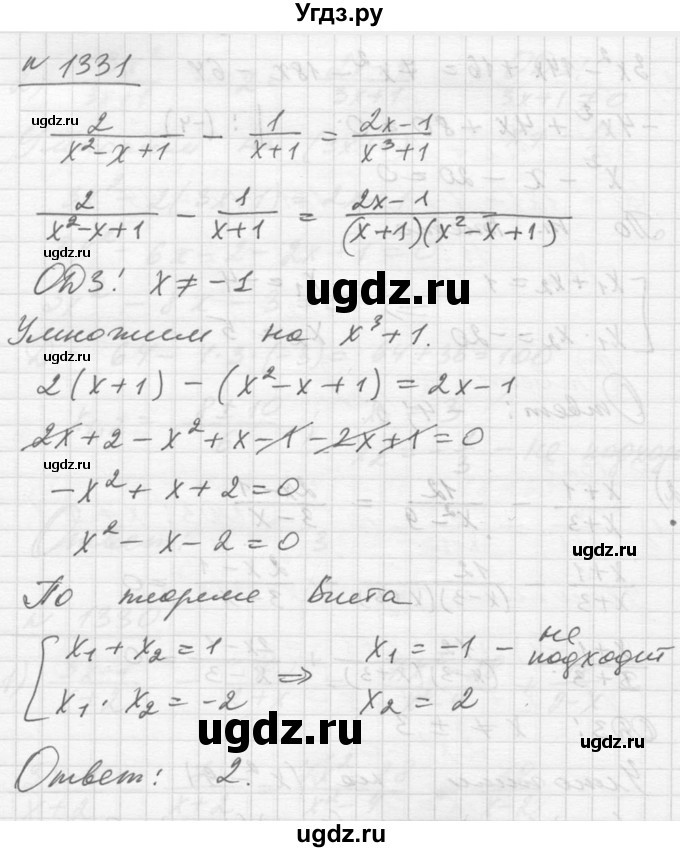 Угдз.ру
№ 1331
ugdz.ru
2/(x²-x+1) - 1/(x+1) = (2x-1)/(x³+1)
2/(x²-x+1) - 1/(x+1) = (2x-1)/((x+1)(x²-x+1))
ugdz.ru
ОДЗ! x ≠ -1
ugdz.ru
Умножим на x³+1.
2(x+1) - (x²-x+1) = 2x-1
2x+2-x²+x-1-2x+1=0
ugdz.ru
-x²+x+2=0
x²-x-2=0
ugdz.ru
По теореме Виета
x₁+x₂=1 ⇒ x₁=-1 - не подходит
ugdz.ru
x₁·x₂=-2 x₂=2
ugdz.ru
ugdz.ru
Ответ: 2.
ugdz.ru
ugdz.ru